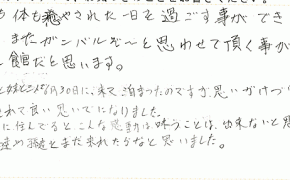 体も癒やされた一日を過ごす事ができ
またガンバルぞ〜と思わせて頂く事が
館だと思います。
月30日に、来て泊まったのですが、思いがけ
れて良い思いでになりました。
に住んでるとこんな感動は味うことは、出来ないと思
また来れたらなと思いました。